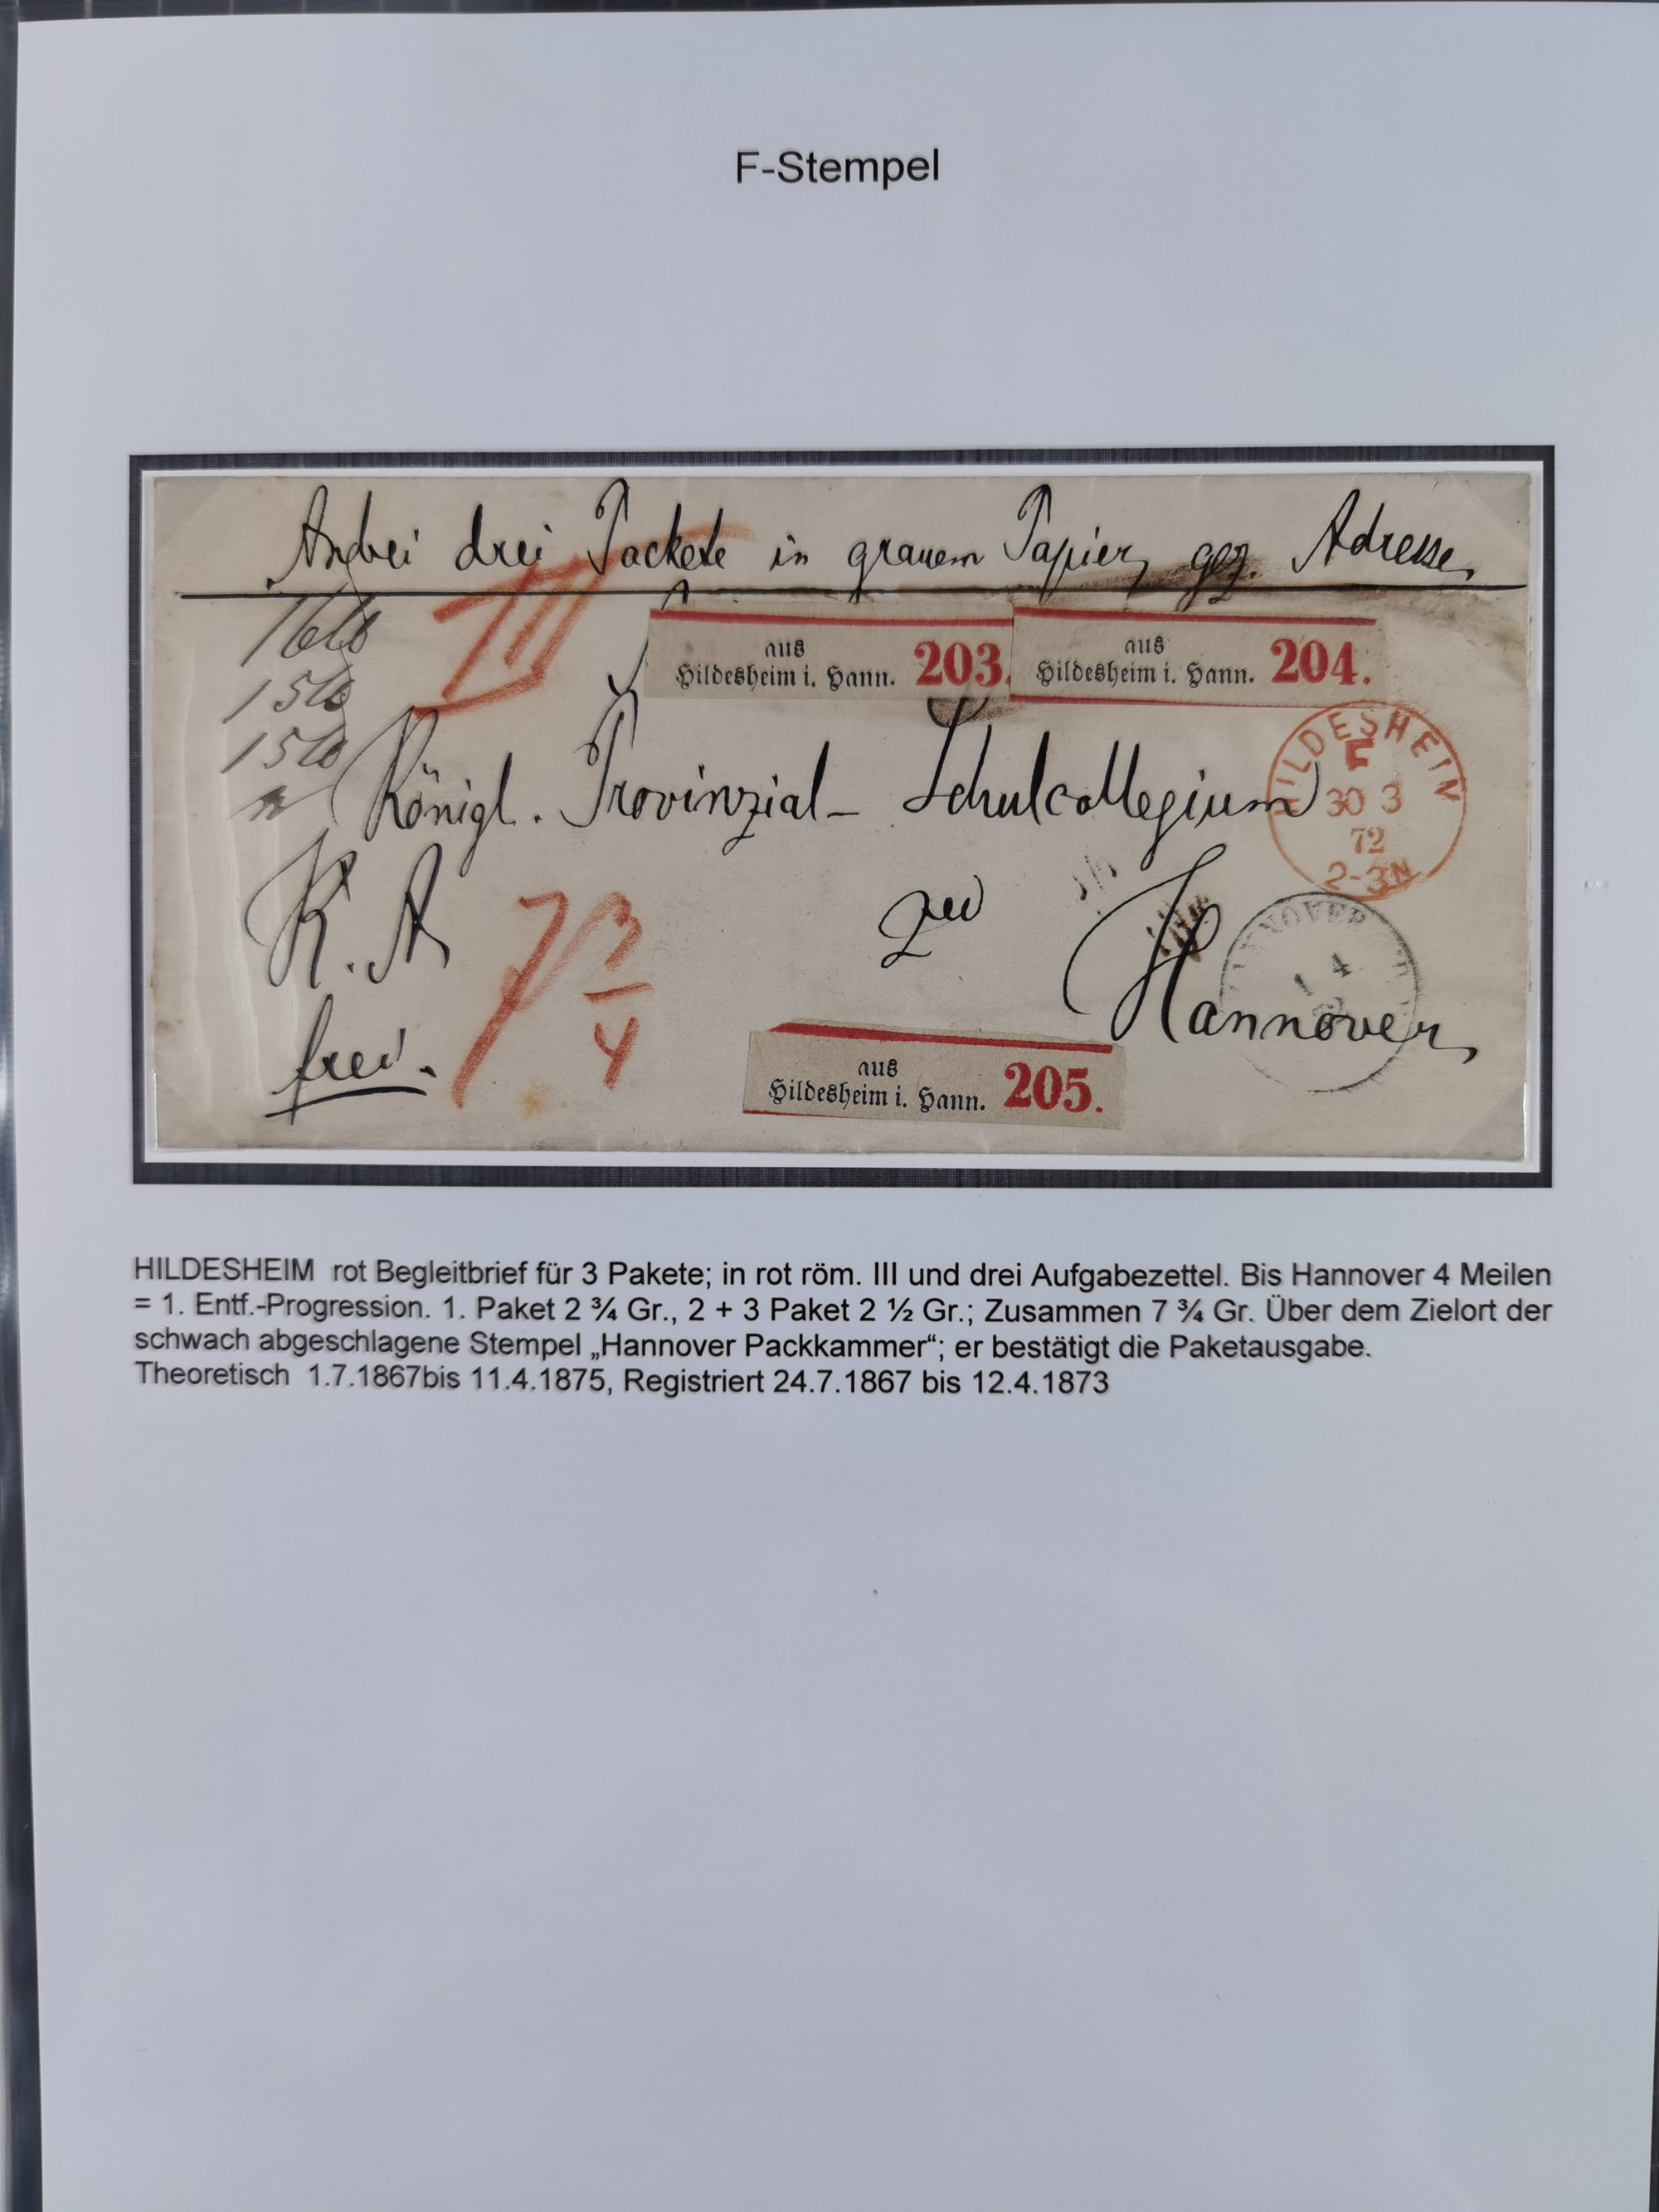 F-Stempel
Anbei drei Packete in grauem Papier, gez. Adresse,
III
aus
Hildesheim i. Hann. 203.
aus
Hildesheim i. Hann. 204.
HILDESHEIM
F
30 3
72
2-3N
Königl. Provinzial-Schulcollegium
K. A.
zu
7 3/4
HANNOVER
1 4
Hannover,
frei.
aus
Hildesheim i. Hann. 205.
HILDESHEIM rot Begleitbrief für 3 Pakete; in rot röm. III und drei Aufgabezettel. Bis Hannover 4 Meilen
= 1. Entf.-Progression. 1. Paket 2 ¾ Gr., 2 + 3 Paket 2 ½ Gr.; Zusammen 7 ¾ Gr. Über dem Zielort der
schwach abgeschlagene Stempel „Hannover Packkammer“; er bestätigt die Paketausgabe.
Theoretisch 1.7.1867bis 11.4.1875, Registriert 24.7.1867 bis 12.4.1873